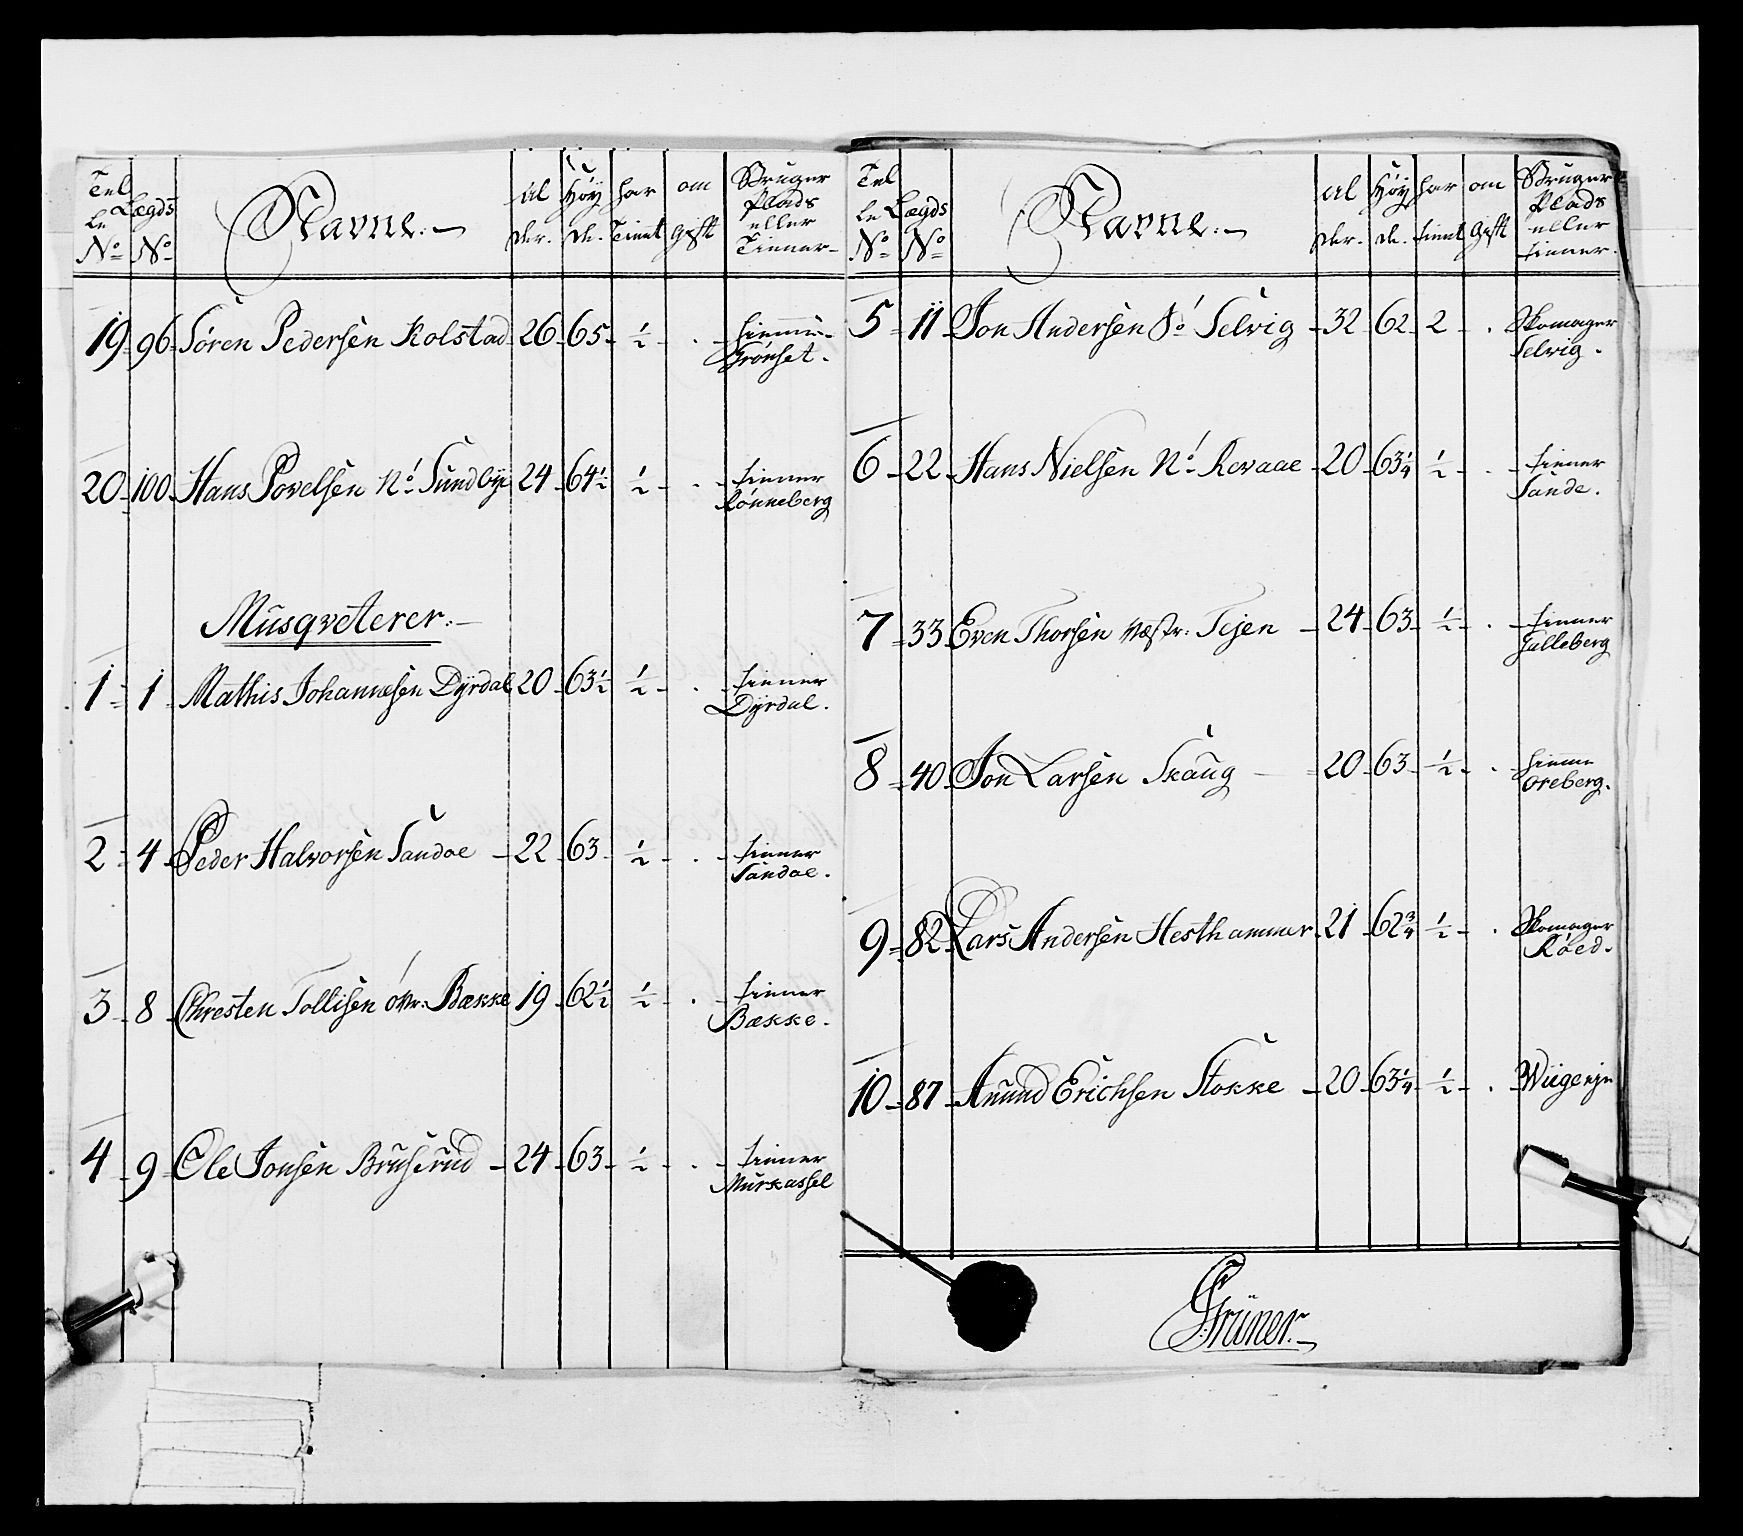 Tel le No. Lægds No. Navne. Al der. Høy de. har Tient om Gift Bruger Plads eller Tienner
19 96 Søren Pedersen Kolstad 26 65 ½ . tienner Grønset.
20 100 Hans Povelsen No. Sundbÿe 24 64½ ½ . tienner Rønneberg
Musqveterer.
1 1 Mathis Johannesen Dÿrdal 20 63½ ½ . tienner Dÿrdal.
2 4 Peder Halvorsen Sandoe 22 63 ½ . tienner Sandoe.
3 8 Christen Tollisen Øvr. Bække 19 62½ ½ . tienner Bække.
4 9 Ole Jonsen Bruserud 24 63 ½ . tienner Murkassel
Tel le No. Lægds No. Navne. Al der. Høy de. har tient om Gift Bruger Plads eller tienner.
5 11 Jon Andersen So. Selvig 32 62 2 . Skomager Selvig.
6 22 Hans Nielsen No. Revaae 20 63¼ ½ . tienner Sande.
7 33 Even Thorsen Væstr. Tejen 24 63 ½ . tienner Julleberg
8 40 Jon Larsen Skaug 20 63 ½ . tienner Oreberg.
9 82 Lars Andersen Hesthammer 21 62¾ ½ . Skomager Røed.
10 87 Anund Erichsen Stokke 20 63¼ ½ .
Grüner.